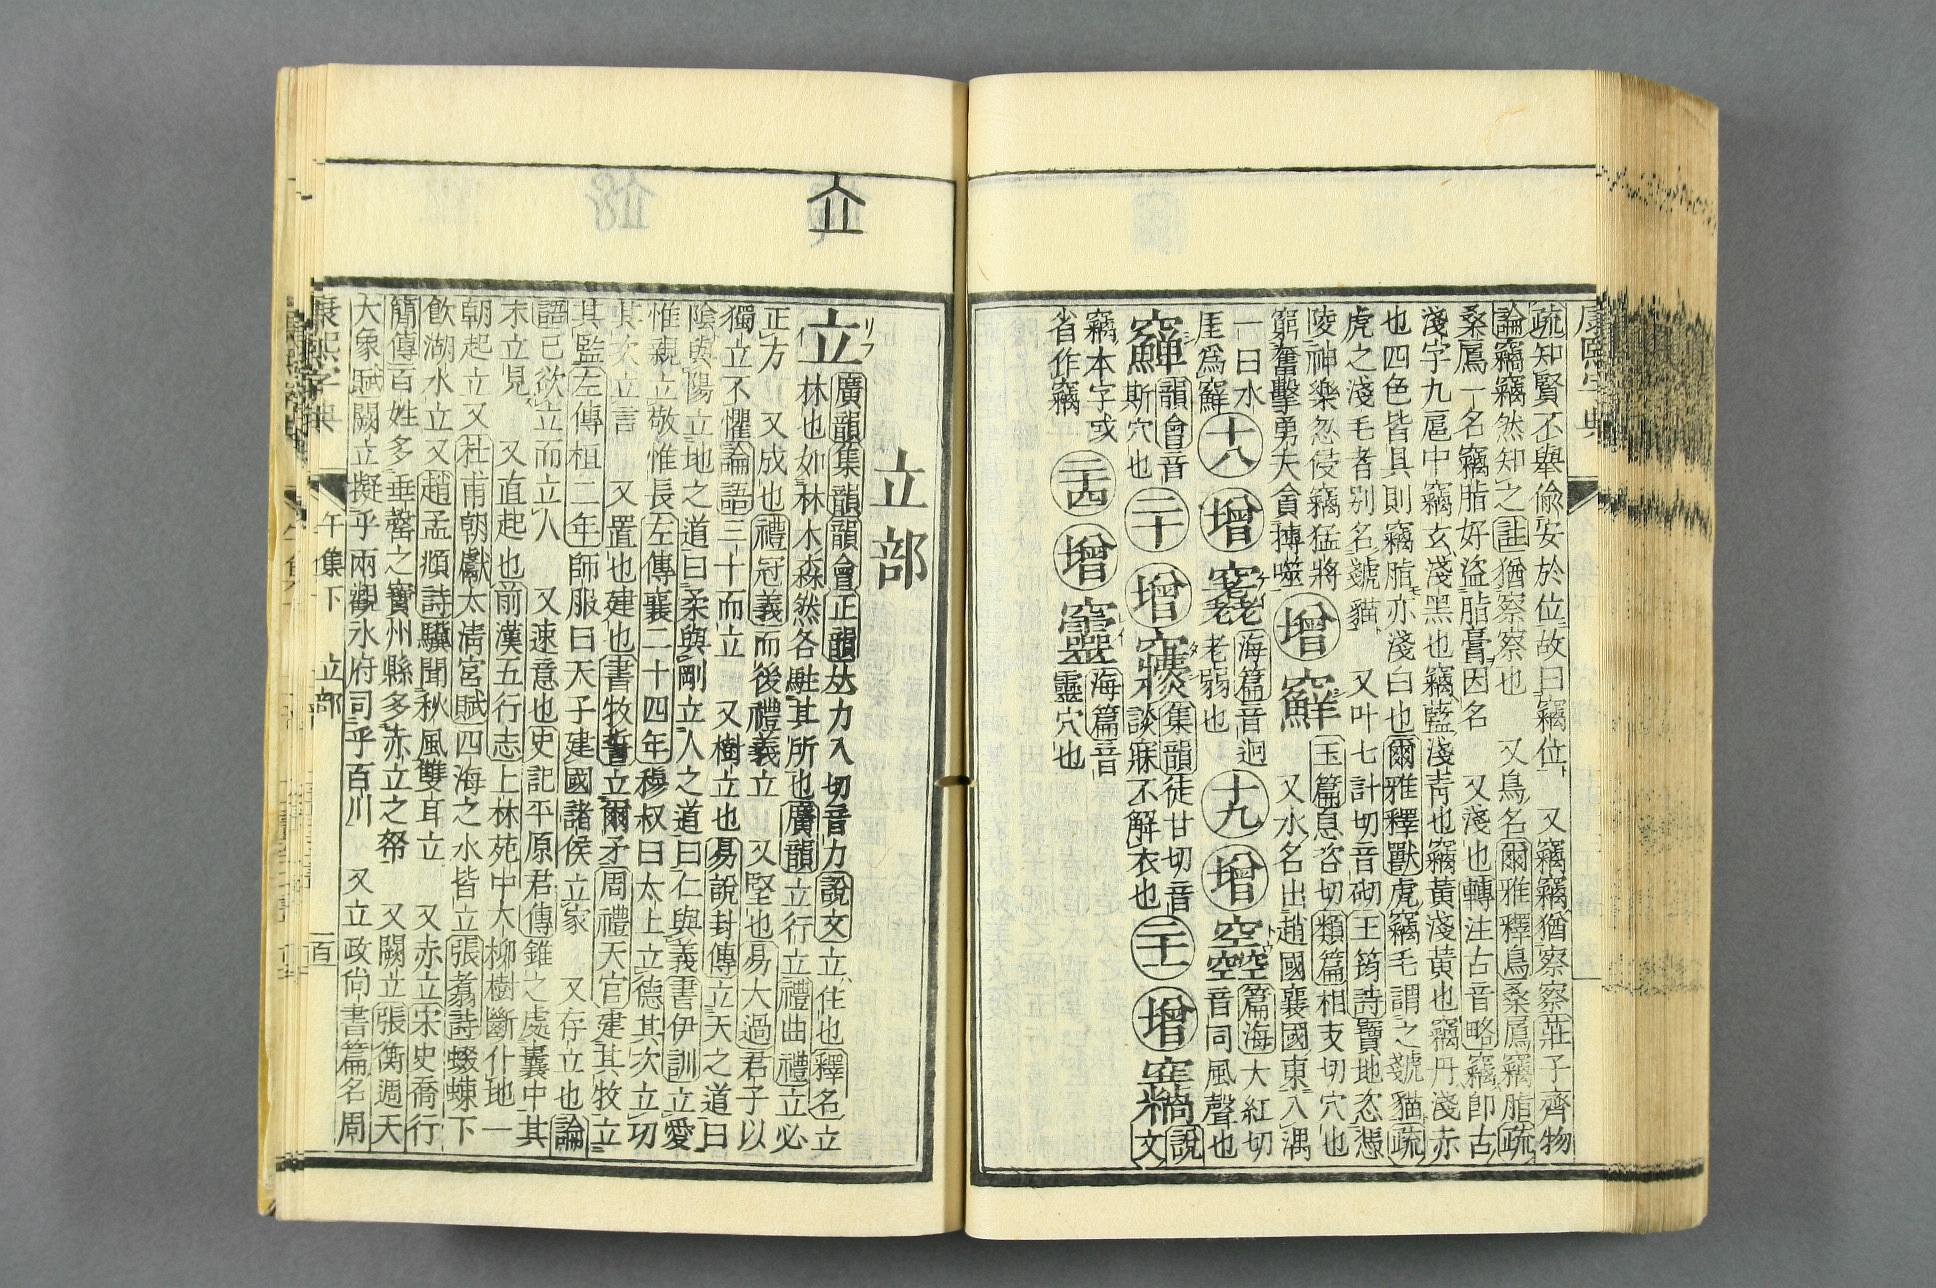 疏知賢不舉偸安於位故曰竊位 又竊竊猶察察莊子齊物
論竊竊然知之註猶察察也 又鳥名爾雅釋鳥桑鳸竊脂疏
桑鳸一名竊脂好盜脂膏因名 又淺也轉注古音略竊卽古
淺字九扈中竊玄淺黑也竊藍淺靑也竊黃淺黃也竊丹淺赤
也四色皆具則竊脂亦淺白也爾雅釋獸虎竊毛謂之虦貓疏
虎之淺毛者别名虦貓 又叶七計切音砌王筠詩寶地恣憑
陵神樂忽侵竊猛將
窮奮擊勇夫貪摶噬
增
玉篇息咨切類篇相支切穴也
又水名出趙國襄國東入湡
一曰水
厓爲
十八
增
海篇音迥
老弱也
十九
增
篇海大紅切
音同風聲也
韻會音
斯穴也
二十
增
集韻徒甘切音
談寐不解衣也
二十一
增
說
文
竊本字或
省作竊
二十四
增
海篇音
靈穴也
立部
立
リフ
廣韻集韻韻會正韻𠀤力入切音力說文立住也釋名立
林也如林木森然各駐其所也廣韻立行立禮曲禮立必
正方 又成也禮冠義而後禮義立 又堅也易大過君子以
獨立不懼論語三十而立 又樹立也易說卦傳立天之道曰
陰與陽立地之道曰柔與剛立人之道曰仁與義書伊訓立愛
惟親立敬惟長左傳襄二十四年穆叔曰太上立德其次立功
其次立言 又置也建也書牧誓立爾矛周禮天官建其牧立
其監左傳桓二年師服曰天子建國諸侯立家 又存立也論
語己欲立而立人 又速意也史記平原君傳錐之處囊中其
末立見 又直起也前漢五行志上林苑中大柳樹斷仆地一
朝起立又杜甫朝獻太淸宮賦四海之水皆立張翥詩蝃蝀下
飮湖水立又趙孟頫詩驥聞秋風雙耳立 又赤立宋史喬行
簡傳百姓多垂罄之室州縣多赤立之帑 又闕立張衡週天
大象賦闕立擬乎兩觀水府司乎百川 又立政尙書篇名周
康熙字典 午集下 立部 一百